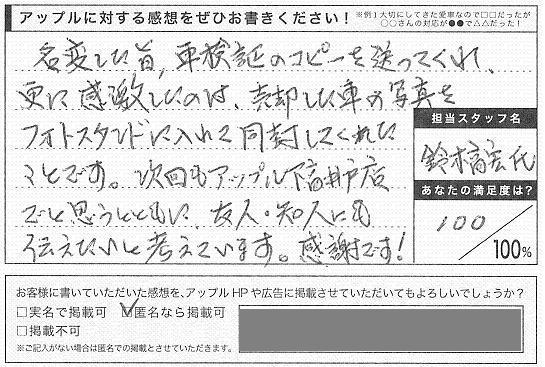 アップルに対する感想をぜひお書きください！
※例）大切にしてきた愛車なので□□だったが
○○さんの対応が●●で△△だった！
名変した旨，車検証のコピーを送ってくれ、
更に感激したのは、売却した車の写真を
フォトスタンドに入れて同封してくれた
ことです。次回もアップル下高井戸店
でと思うとともに、友人・知人にも
伝えたいと考えています。感謝です！
担当スタッフ名
鈴木高宏氏
あなたの満足度は？
100
100%
お客様に書いていただいた感想を、アップルHPや広告に掲載させていただいてもよろしいでしょうか？
□実名で掲載可 ☑匿名なら掲載可
□掲載不可
※ご記入がない場合は匿名での掲載とさせていただきます。